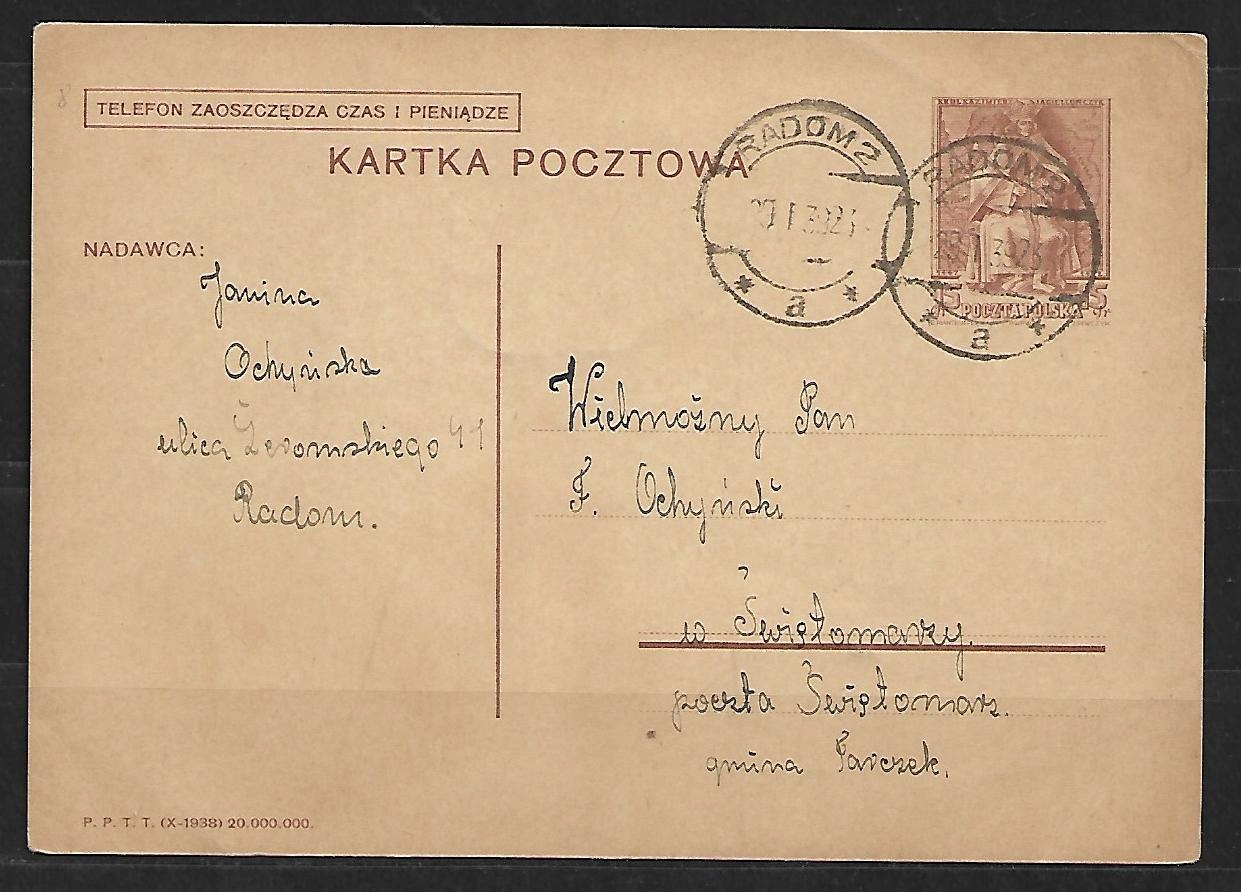 TELEFON ZAOSZCZĘDZA CZAS I PIENIĄDZE
KARTKA POCZTOWA
RADOM 2
I 39 23
a
RADOM 2
I 39 23
a
15 POCZTA POLSKA 15
gr gr
NADAWCA:
Janina
Ochyńska
ulica Żeromskiego 41
Radom.
Wielmożny Pan
F. Ochyński
w Świętomarzy.
poczta Świętomarz.
gmina Tarczek.
P. P. T. T. (X-1938) 20.000.000.